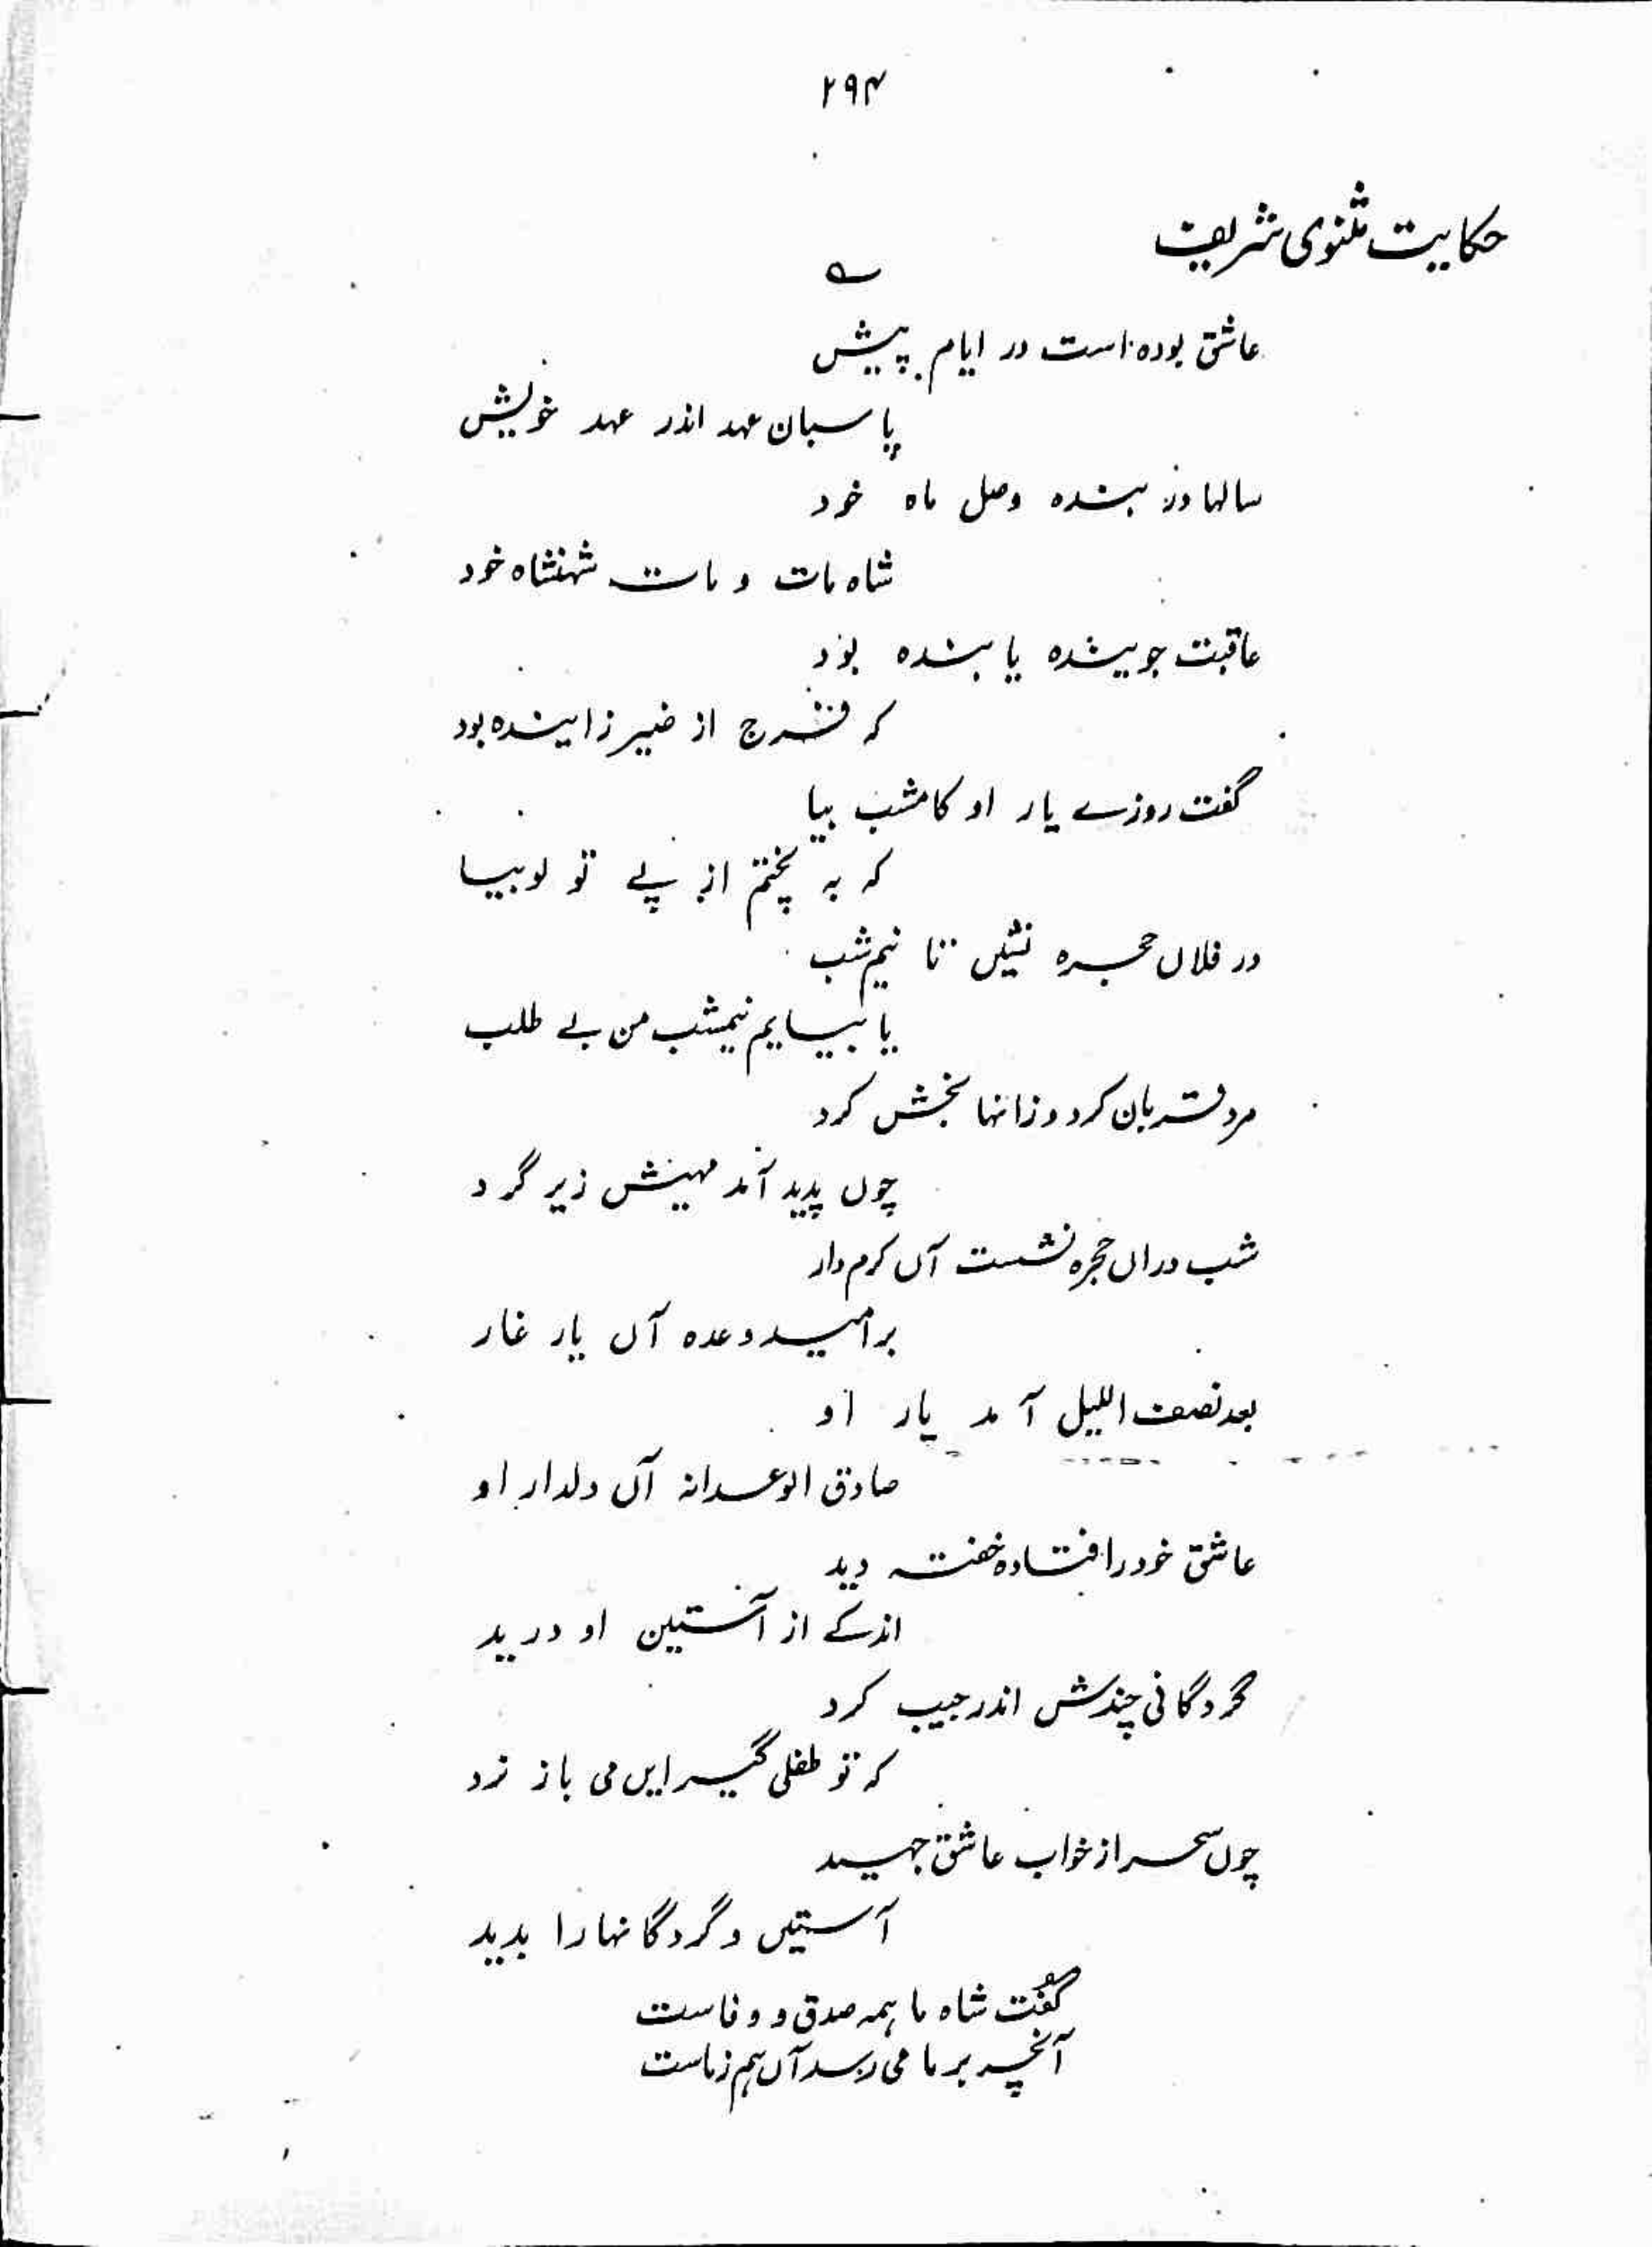 ۲۹۴
حکایت مثنوی شریف
عاشق بوده است در ایام پیش
پاسبان عہد اندر عہد خویش
سالہا در بندہ وصل ماہ خود
شاہ مات و مات شہنشاہ خود
عاقبت جویندہ یابندہ بود
کہ فرج از ضیر زایندہ بود
گفت روزے یار او کامشب بیا
کہ بہ پختم از پے تو لوبیا
در فلاں حجرہ نشیں تا نیم شب
یا بیایم نیمشب من بے طلب
مرد قربان کرد و زانہا بخش کرد
چوں پدید آمد مہینش زیر گرد
شب دراں حجرہ نشست آں کرم دار
بر امید وعدہ آں یار غار
بعد نصف اللیل آمد یار او
صادق الوعدانہ آں دلدار او
عاشق خود را فتادہ خفتہ دید
اندکے از آستین او درید
گردگانی چندش اندر جیب کرد
کہ تو طفلی گیر ایں می باز نرد
چوں سحر از خواب عاشق جہید
آستیں و گردگانہا را بدید
گفت شاہ ما ہمہ صدق و وفاست
آنچہ بر ما می رسد آں ہم زماست